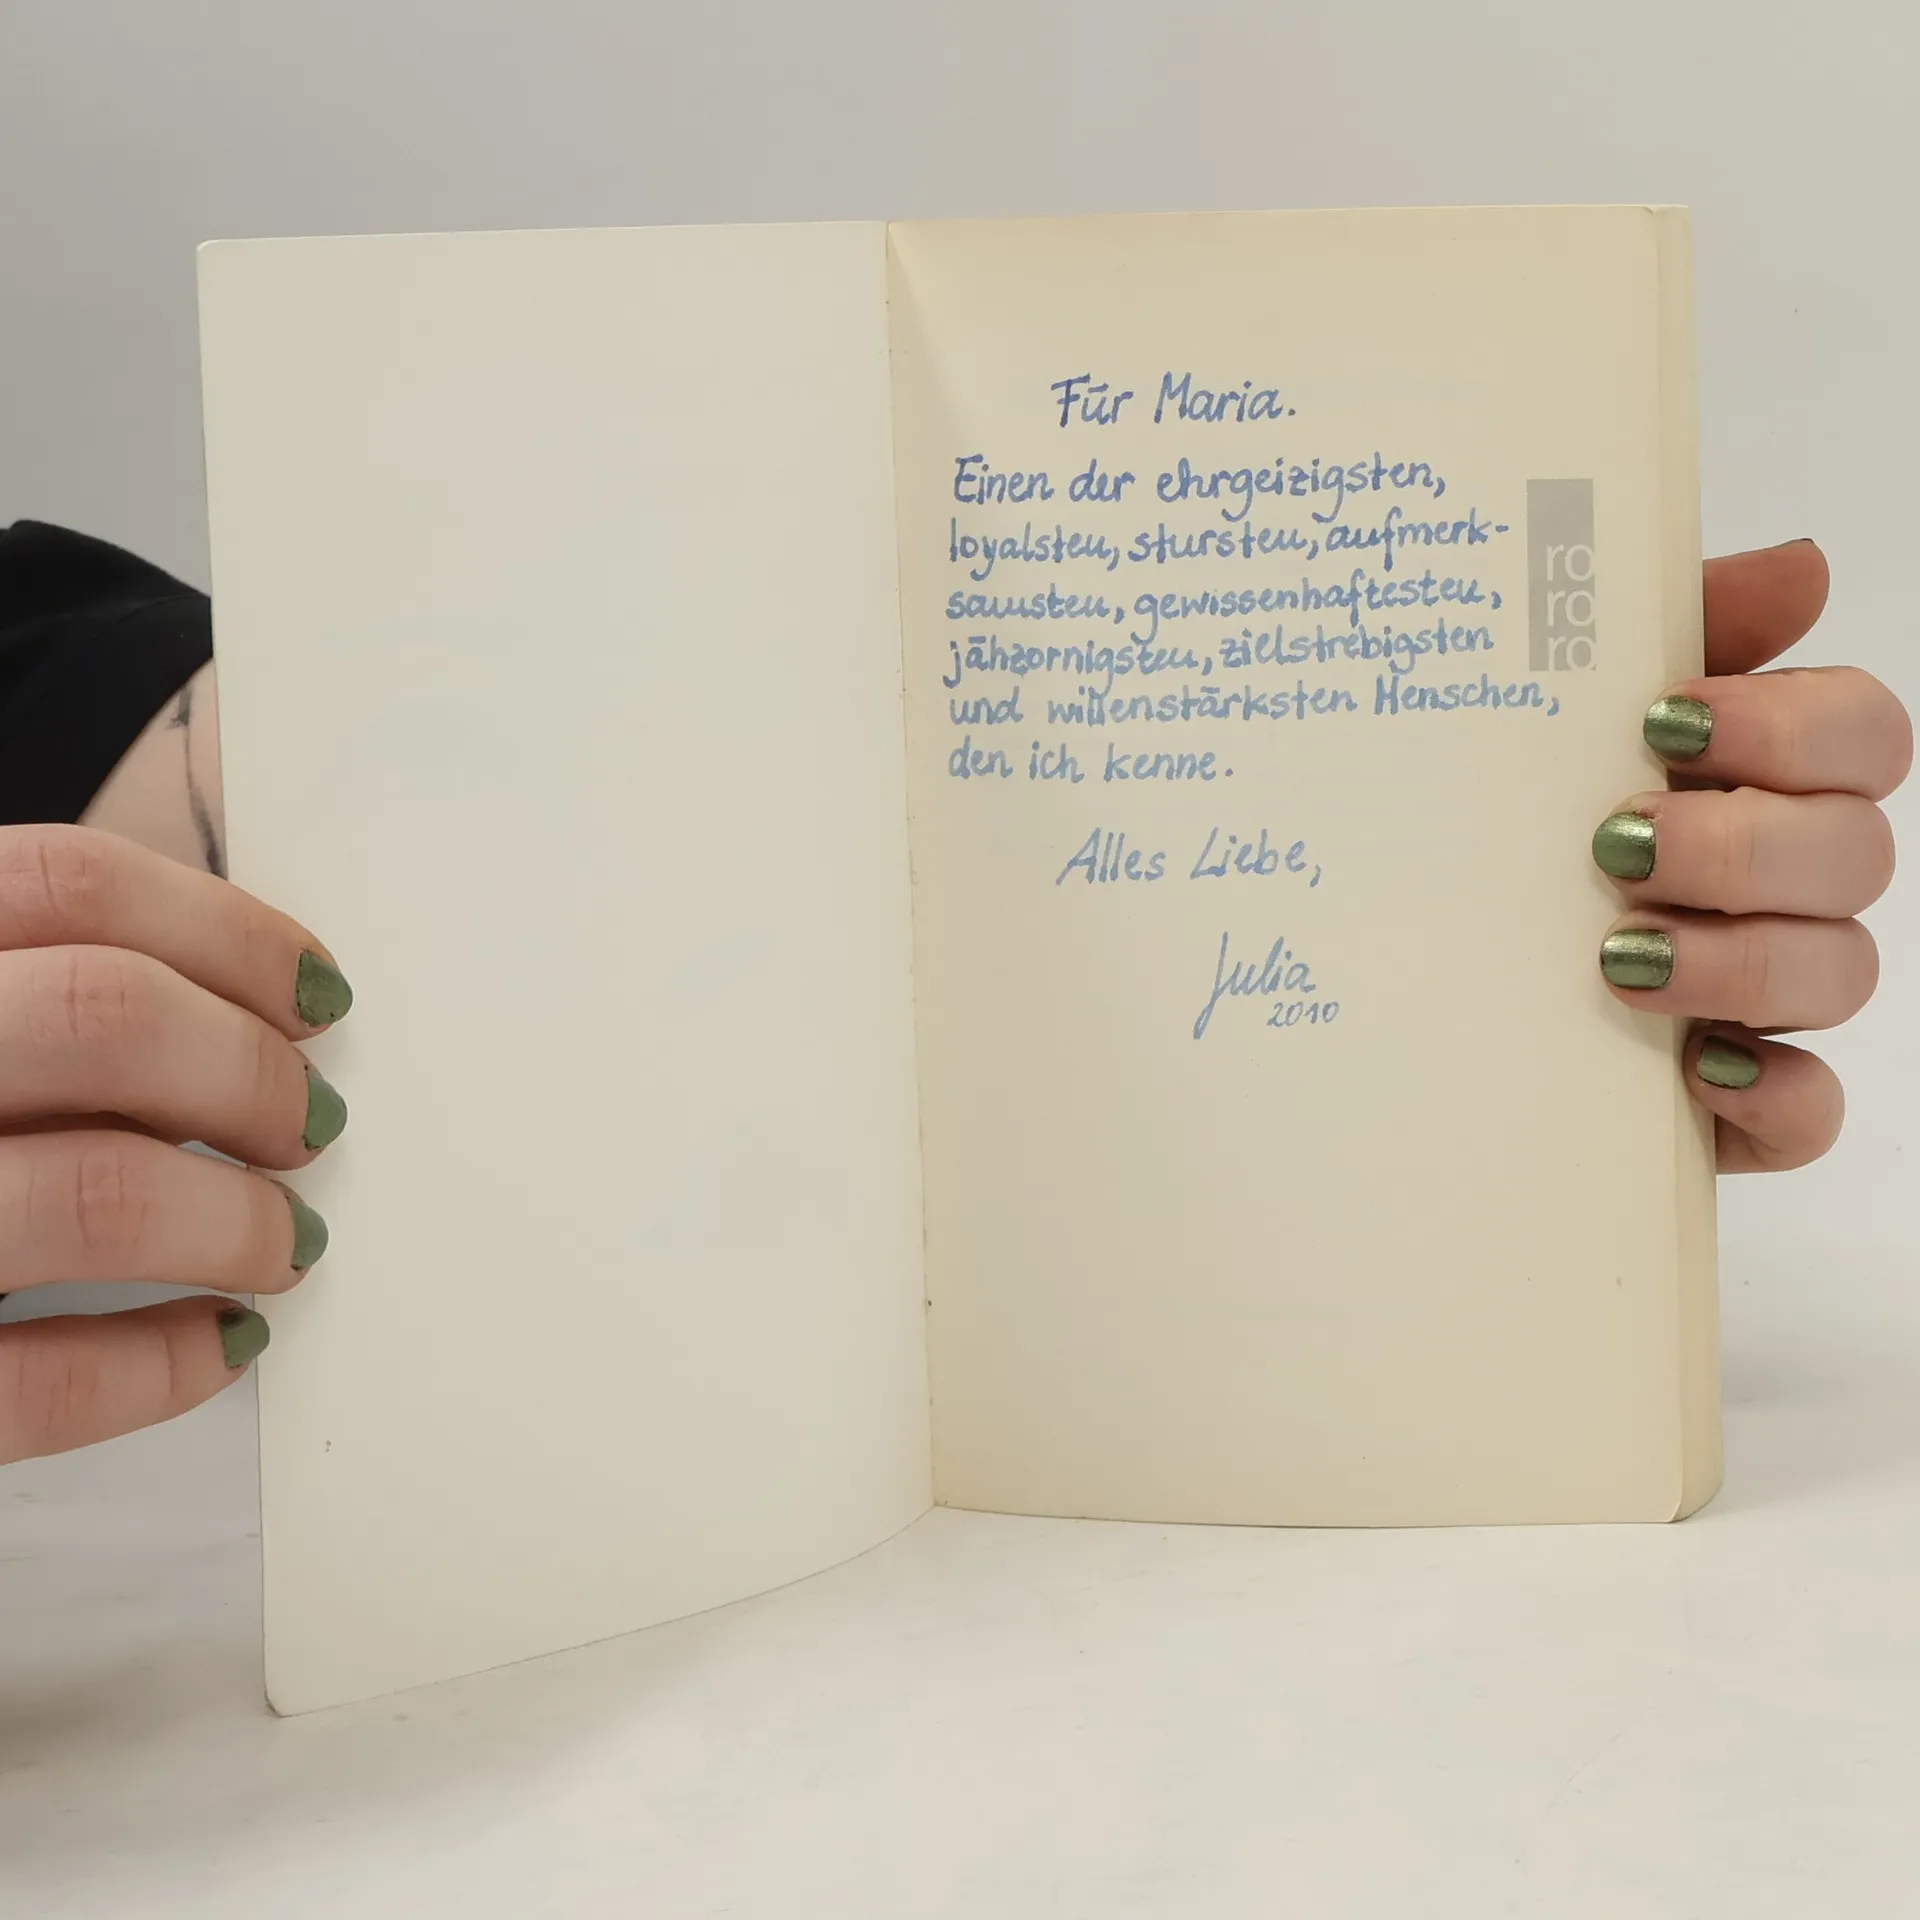 Für Maria.
Einen der ehrgeizigsten,
loyalsten, stursten, aufmerk-
samsten, gewissenhaftesten,
jähzornigsten, zielstrebigsten
und willenstärksten Menschen,
den ich kenne.
Alles Liebe,
Julia
2010
ro
ro
ro